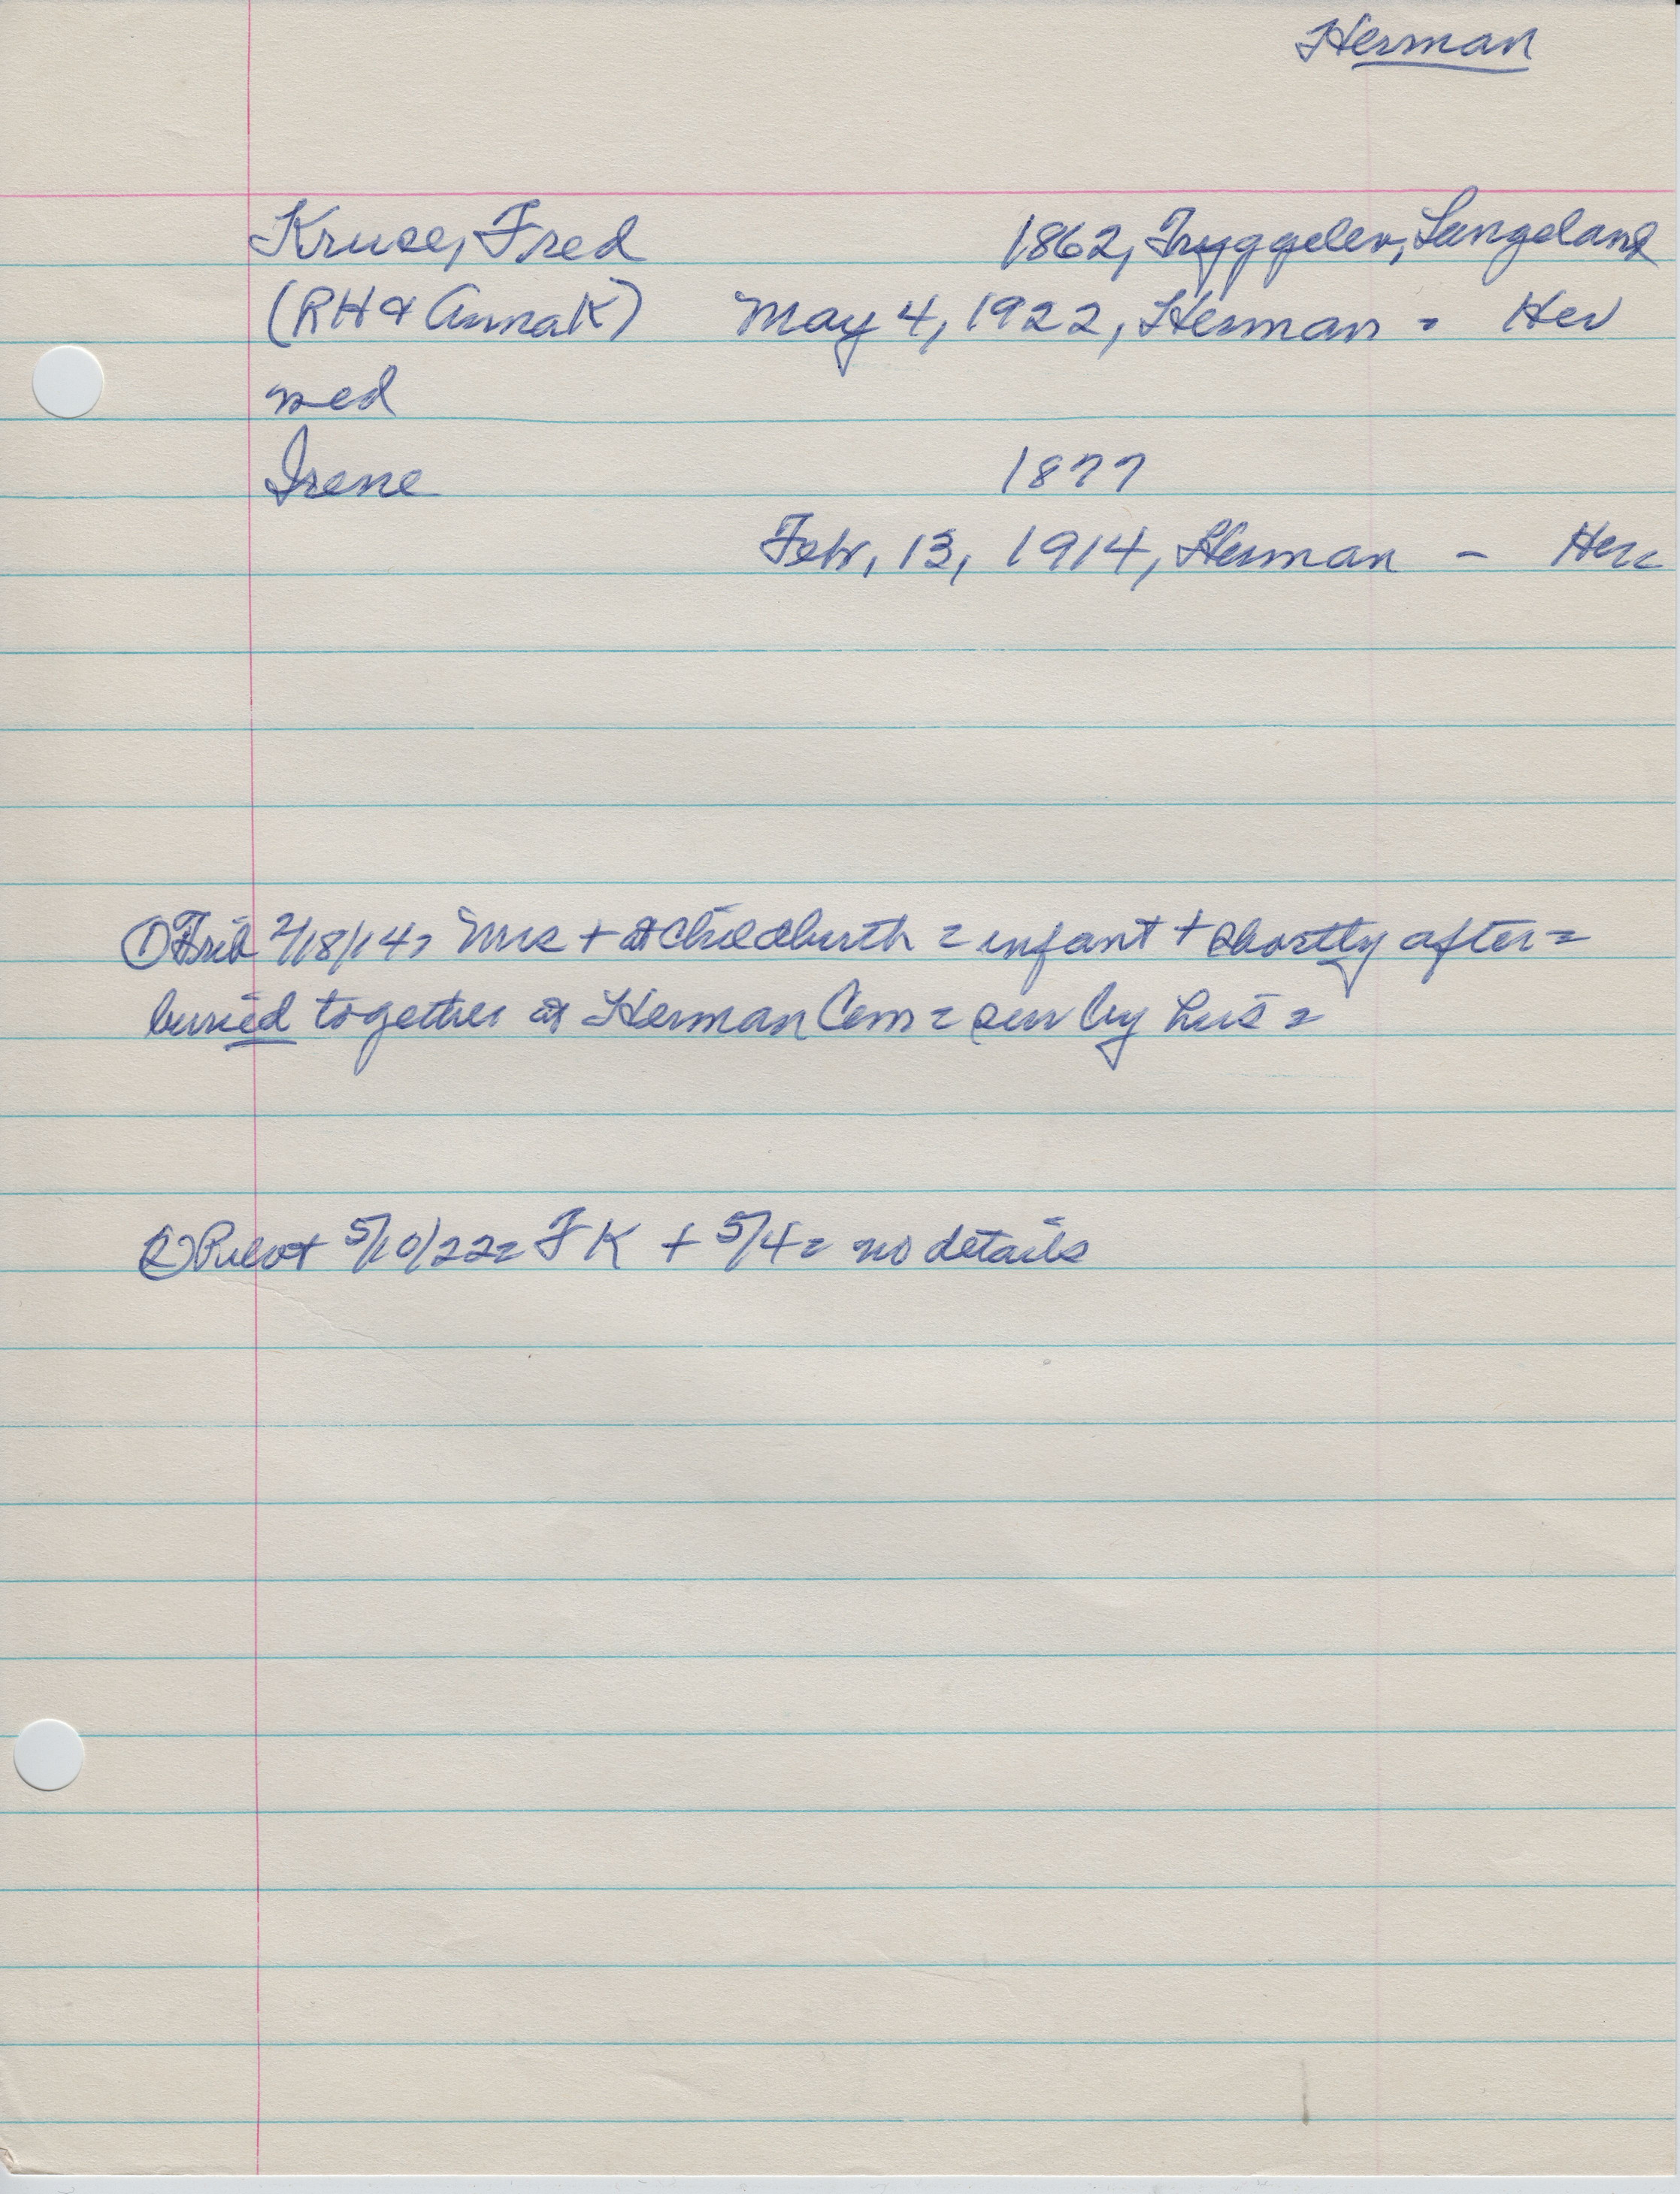 Herman
Kruse, Fred 1862, Tryggelev, Langeland
(RH & Anna K) May 4, 1922, Herman = Her
med
Irene 1877
Febr, 13, 1914, Herman - Her
① Trib 2/18/14= Mrs + at childbirth = infant + shortly after =
buried together at Herman Cem = sur by hus =
② Pilot 5/10/22= FK + 5/4= no details